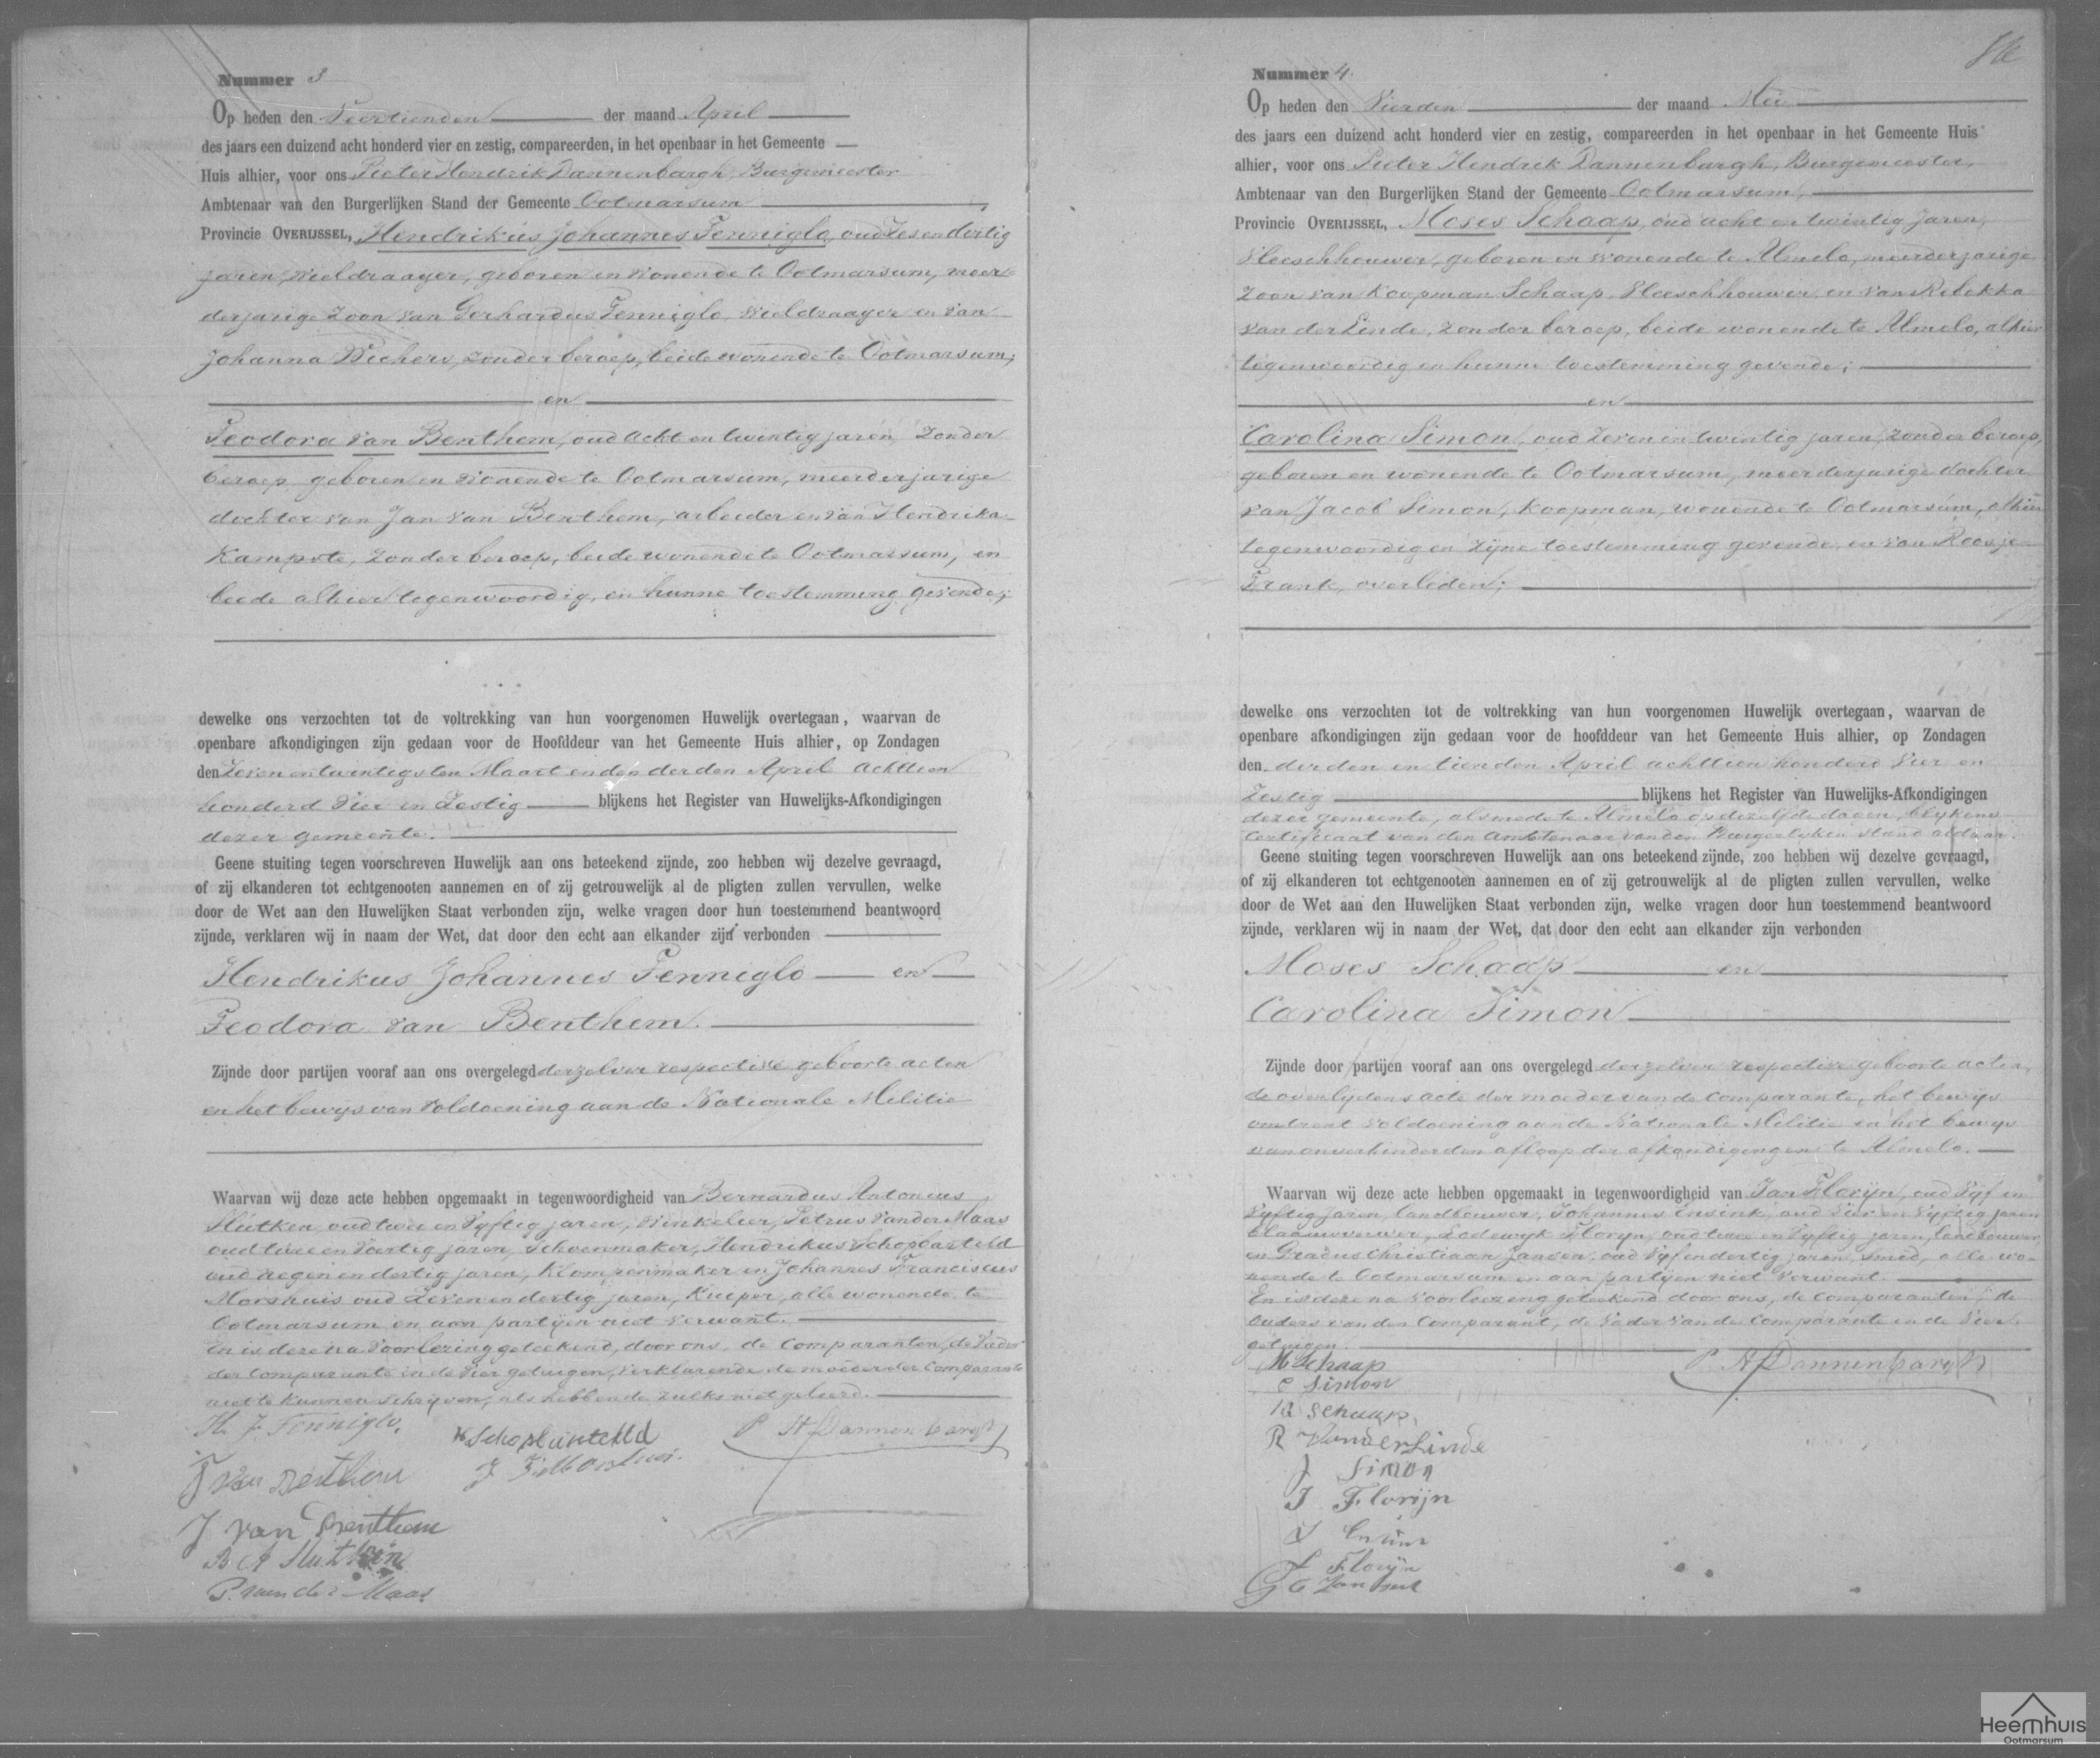 Nummer 3
Op heden den Veertienden der maand April
des jaars een duizend acht honderd vier en zestig, compareerden, in het openbaar in het Gemeente
Huis alhier, voor ons Pieter Hendrik Dannenbargh, Burgemeester
Ambtenaar van den Burgerlijken Stand der Gemeente Ootmarsum,
Provincie OVERIJSSEL, Hendrikus Johannes Fenniglo, oud Zes en dertig
jaren, Wieldraayer, geboren en Wonende te Ootmarsum, meer-
derjarige Zoon van Gerhardus Fenniglo, Wieldraayer en van
Johanna Wichers, zonder beroep, beide wonende te Ootmarsum;
en
Feodora van Benthem, oud Acht en twintig jaren, Zonder
beroep, geboren en Wonende te Ootmarsum, meerderjarige
dochter van Jan van Benthem, arbeider en van Hendrika
Kampste, Zonder beroep, beide wonende te Ootmarsum, en
beide alhier tegenwoordig, en hunne toestemming gevende;
dewelke ons verzochten tot de voltrekking van hun voorgenomen Huwelijk overtegaan, waarvan de
openbare afkondigingen zijn gedaan voor de Hoofddeur van het Gemeente Huis alhier, op Zondagen
den Zeven en twintigsten Maart en den derden April achttien
honderd Vier en Zestig blijkens het Register van Huwelijks-Afkondigingen
dezer gemeente.
Geene stuiting tegen voorschreven Huwelijk aan ons beteekend zijnde, zoo hebben wij dezelve gevraagd,
of zij elkanderen tot echtgenooten aannemen en of zij getrouwelijk al de pligten zullen vervullen, welke
door de Wet aan den Huwelijken Staat verbonden zijn, welke vragen door hun toestemmend beantwoord
zijnde, verklaren wij in naam der Wet, dat door den echt aan elkander zijn verbonden
Hendrikus Johannes Fenniglo en
Feodora van Benthem.
Zijnde door partijen vooraf aan ons overgelegd derzelver respective geboorte acten
en het bewijs van Voldoening aan de Nationale Militie
Waarvan wij deze acte hebben opgemaakt in tegenwoordigheid van Bernardus Antonius
oud twee en Vyftig jaren, Winkelier, Petrus van der Maas
oud twee en Veertig jaren, Schoenmaker, Hendrikus
oud negen en dertig jaren, Klompenmaker en Johannes Franciscus
Morshuis oud Zeven en dertig jaren, Kuiper, alle wonende te
Ootmarsum en aan partijen niet verwant.
En is deze na Voorlezing geteekend, door ons, de Comparanten, de Vader
der Comparante en de Vier getuigen, Verklarende de moeder der Comparante
niet te kunnen schrijven, als hebbende zulks niet geleerd.
H. J. Fenniglo,
P H Dannenbargh
F van Benthem
J van Benthem
P. van der Maas
Nummer 4.
Op heden den Vierden der maand Mei
des jaars een duizend acht honderd vier en zestig, compareerden in het openbaar in het Gemeente Huis
alhier, voor ons Pieter Hendrik Dannenbargh, Burgemeester,
Ambtenaar van den Burgerlijken Stand der Gemeente Ootmarsum,
Provincie OVERIJSSEL, Moses Schaap, oud acht en twintig jaren,
Vleeschhouwer, geboren en wonende te Almelo, meerderjarige
Zoon van Koopman Schaap, Vleeschhouwer, en van Rebekka
van der Linde, zonder beroep, beide wonende te Almelo, alhier
tegenwoordig en hunne toestemming gevende;
en
Carolina Simon, oud Zeven en twintig jaren, zonder beroep,
geboren en wonende te Ootmarsum, meerderjarige dochter
van Jacob Simon, Koopman, wonende te Ootmarsum, alhier
tegenwoordig en Zijne toestemming gevende, en van Roosje
Frank, overleden;
dewelke ons verzochten tot de voltrekking van hun voorgenomen Huwelijk overtegaan, waarvan de
openbare afkondigingen zijn gedaan voor de hoofddeur van het Gemeente Huis alhier, op Zondagen
den derden en tienden April achttien honderd Vier en
Zestig blijkens het Register van Huwelijks-Afkondigingen
dezer gemeente, alsmede te Almelo op dezelfde dagen, blykens
Certificaat van den Ambtenaar van den Burgerlyken stand aldaar.
Geene stuiting tegen voorschreven Huwelijk aan ons beteekend zijnde, zoo hebben wij dezelve gevraagd,
of zij elkanderen tot echtgenooten aannemen en of zij getrouwelijk al de pligten zullen vervullen, welke
door de Wet aan den Huwelijken Staat verbonden zijn, welke vragen door hun toestemmend beantwoord
zijnde, verklaren wij in naam der Wet, dat door den echt aan elkander zijn verbonden
Moses Schaap en
Carolina Simon
Zijnde door partijen vooraf aan ons overgelegd derzelver respective geboorte acten,
de overlijdens acte der moeder van de Comparante, het bewijs
omtrent Voldoening aan de Nationale Militie en het bewijs
van onverhinderden afloop der afkondigingen te Almelo.
Waarvan wij deze acte hebben opgemaakt in tegenwoordigheid van Jan Florijn, oud Vijf en
Vyftig jaren, landbouwer, Johannes Ensink, oud Vier en Vyftig jaren
blaauwverwer, Lodewyk Floryn, oud twee en Vyftig jaren, landbouwer,
en Gradus Christiaan Jansen, oud Vijf en dertig jaren, Smid, alle wo-
nende te Ootmarsum en aan partijen niet Verwant.
En is deze na Voorlezing geteekend door ons, de Comparanten, de
ouders van den Comparant, de Vader van de Comparante en de Vier
getuigen.
M Schaap
P H Dannenbargh
C Simon
K Schaap.
R VanderLinde
J Simon
J Florijn
L Florijn
G C Jansen
Heemhuis
Ootmarsum